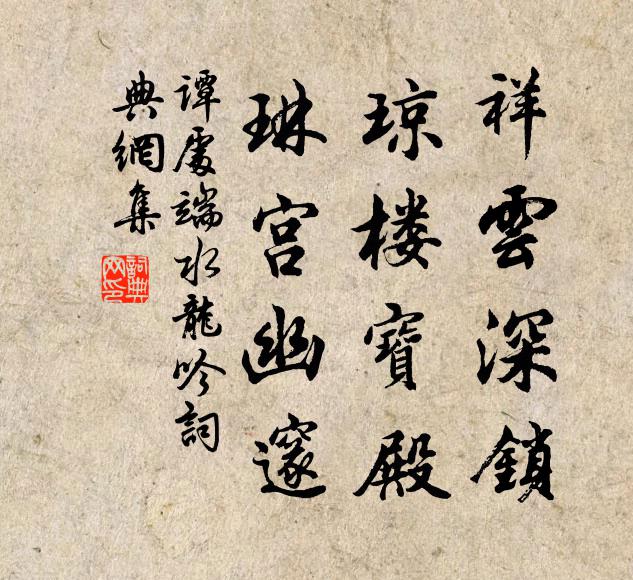 祥雲深鎖
琼楼寶殿
琳宫幽邃
譚處端水龍吟詞
典網集
詞典
网印